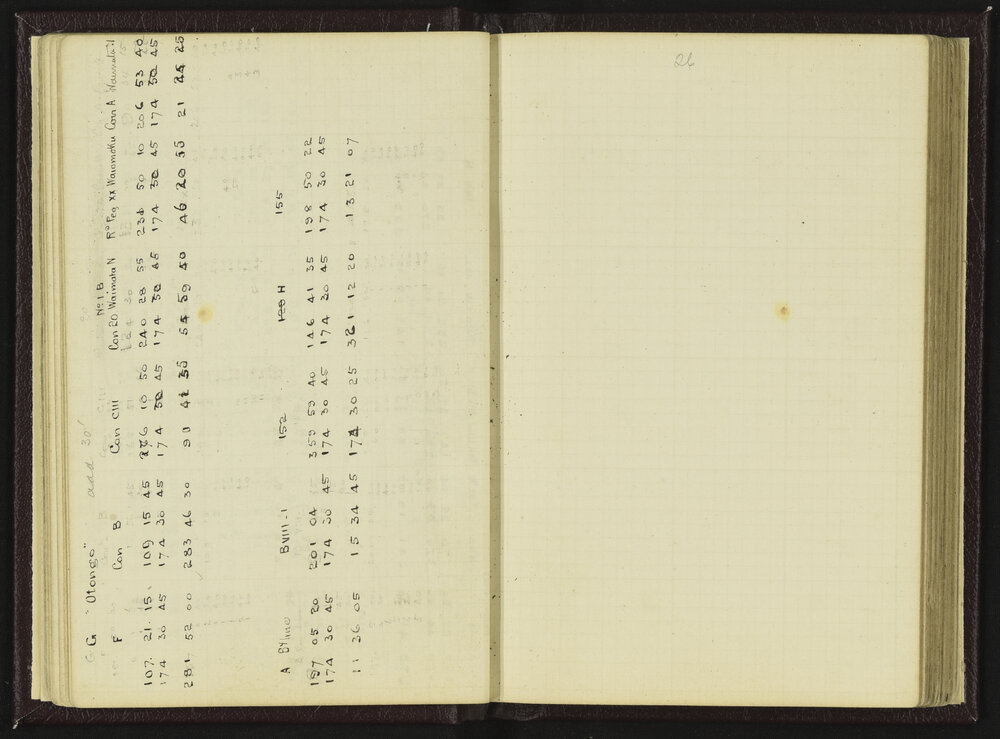 G "Otongo" add 30'
No 1 B
F Con B Con CIII Con 20 Waimata N Rd Peg XX Waiomoku Con A Waimata N
107. 21. 15. 109 15 45 276 10 50 240 28 55 234 50 10 206 53 40
174 30 45 174 30 45 174 30 45 174 30 45 174 30 45 174 30 45
281 52 00 283 46 30 91 41 35 54 59 40 46 20 55 21 24 25
A BVIII-1 152 H 155
197 05 20 201 04 359 59 40 146 41 35 198 50 22
174 30 45 174 30 45 174 30 45 174 30 45 174 30 45
11 36 05 15 34 45 174 30 25 361 12 20 13 21 07
26